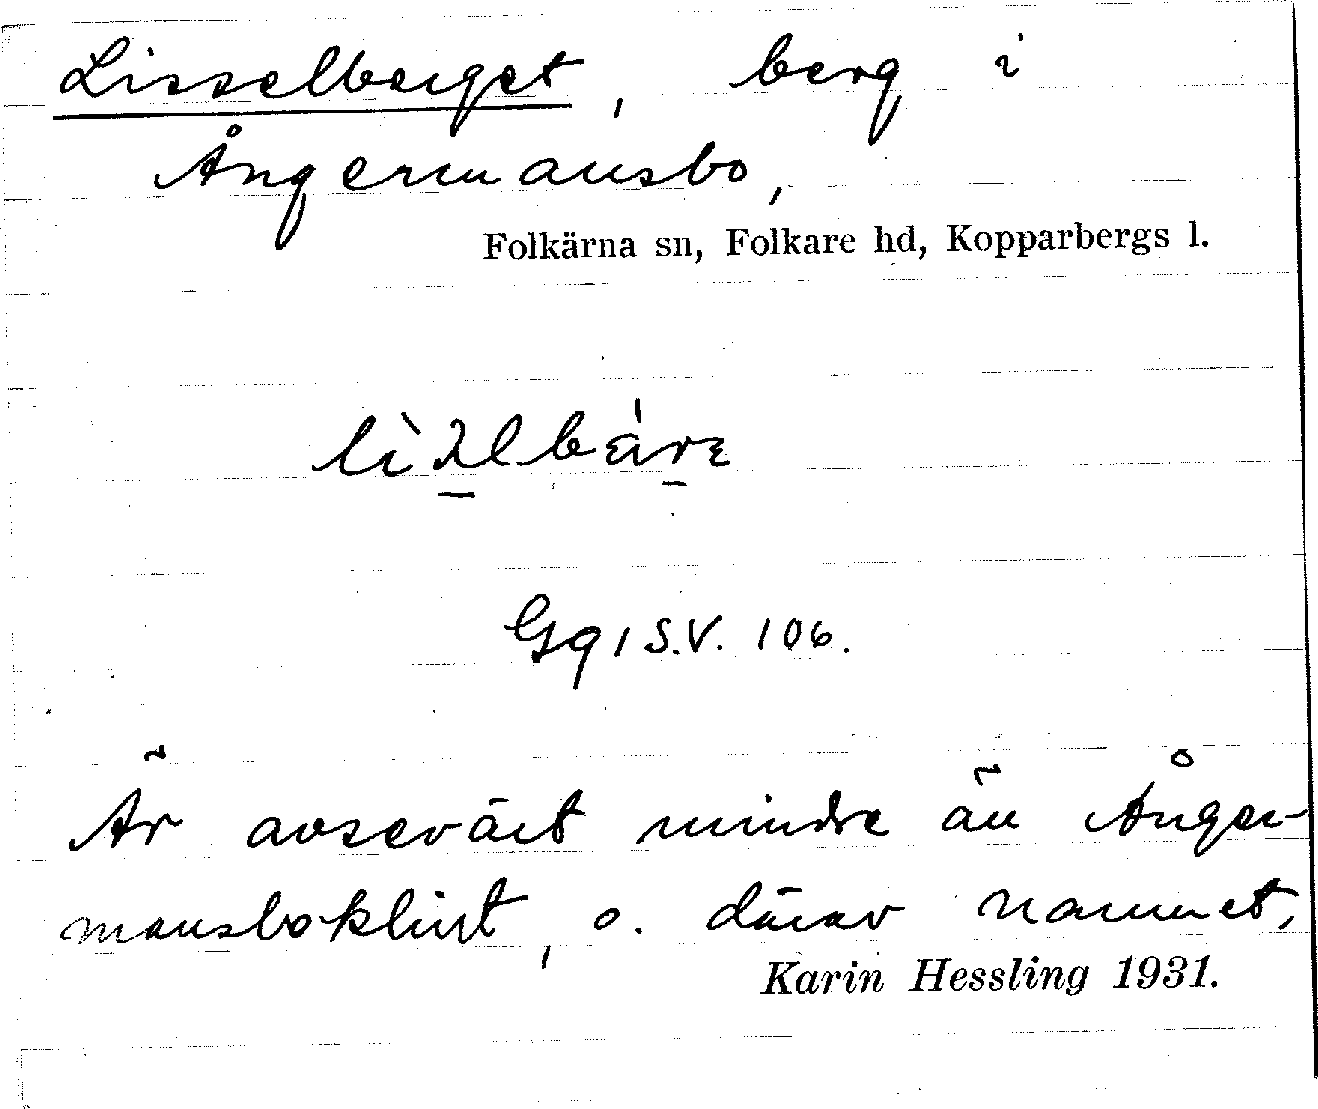 Lisselberget, berg i
Ångermansbo,
Folkärna sn, Folkare hd, Kopparbergs l.
Gg 1 S.V. 106.
Är avsevärt mindre än Ånger-
mansboklint, o. därav namnet.
Karin Hessling 1931.